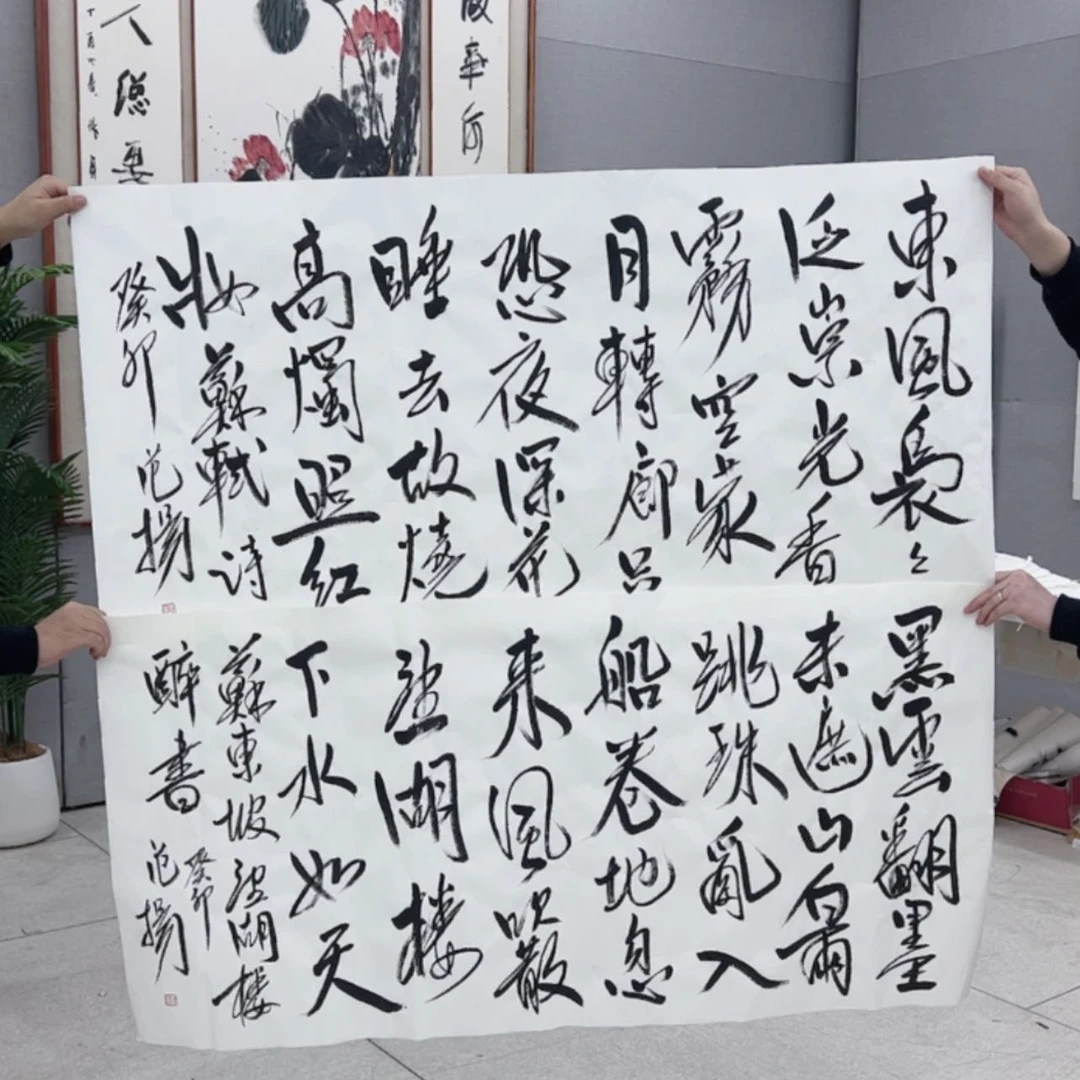 東風裊々
泛崇光香
霧空蒙
月轉廊只
恐夜深花
睡去故燒
高燭照红
妝蘇軾詩
癸卯范揚
黑雲翻墨
未遮山白雨
跳珠亂入
船卷地忽
来風吹散
望湖樓
下水如天
蘇東坡望湖樓
醉書
癸卯
范揚